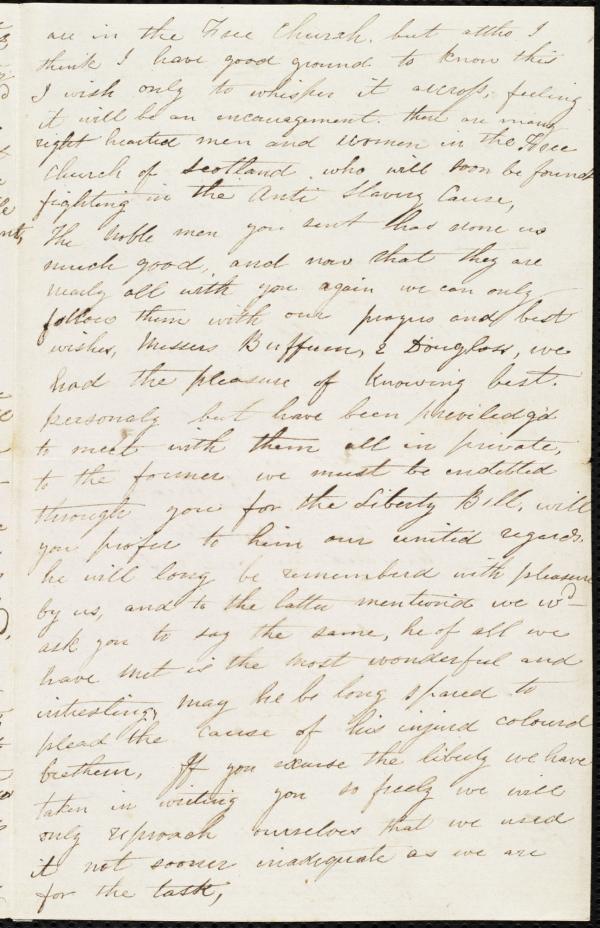 are in the Free Church. but altho I
think I have good ground to know this
I wish only to whisper it across, feeling
it will be an encouragement. there are many
right hearted men and women in the Free
Church of Scotland. who will soon be found
fighting in the Anti Slavery Cause,
The noble men you sent has done us
much good, and now that they are
nearly all with you again we can only
follow them with our prayers and best
wishes, Messrs Buffum, & Douglass, we
had the pleasure of knowing best.
personaly but have been priviledg'd
to meet with them all in private,
to the former we must be indebted
through you for the Liberty Bell, will
you profer to him our united regards.
he will long be rememberd with pleasure
by us, and to the latter mention'd we wd
ask you to say the same, he of all we
have met is the most wonderful and
intresting, may he be long spared to
plead the cause of his injurd coloured
brethern, If you excuse the liberty we have
taken in writing you so freely we will
only reproach ourselves that we used
it not sooner inadequate as we are
for the task,